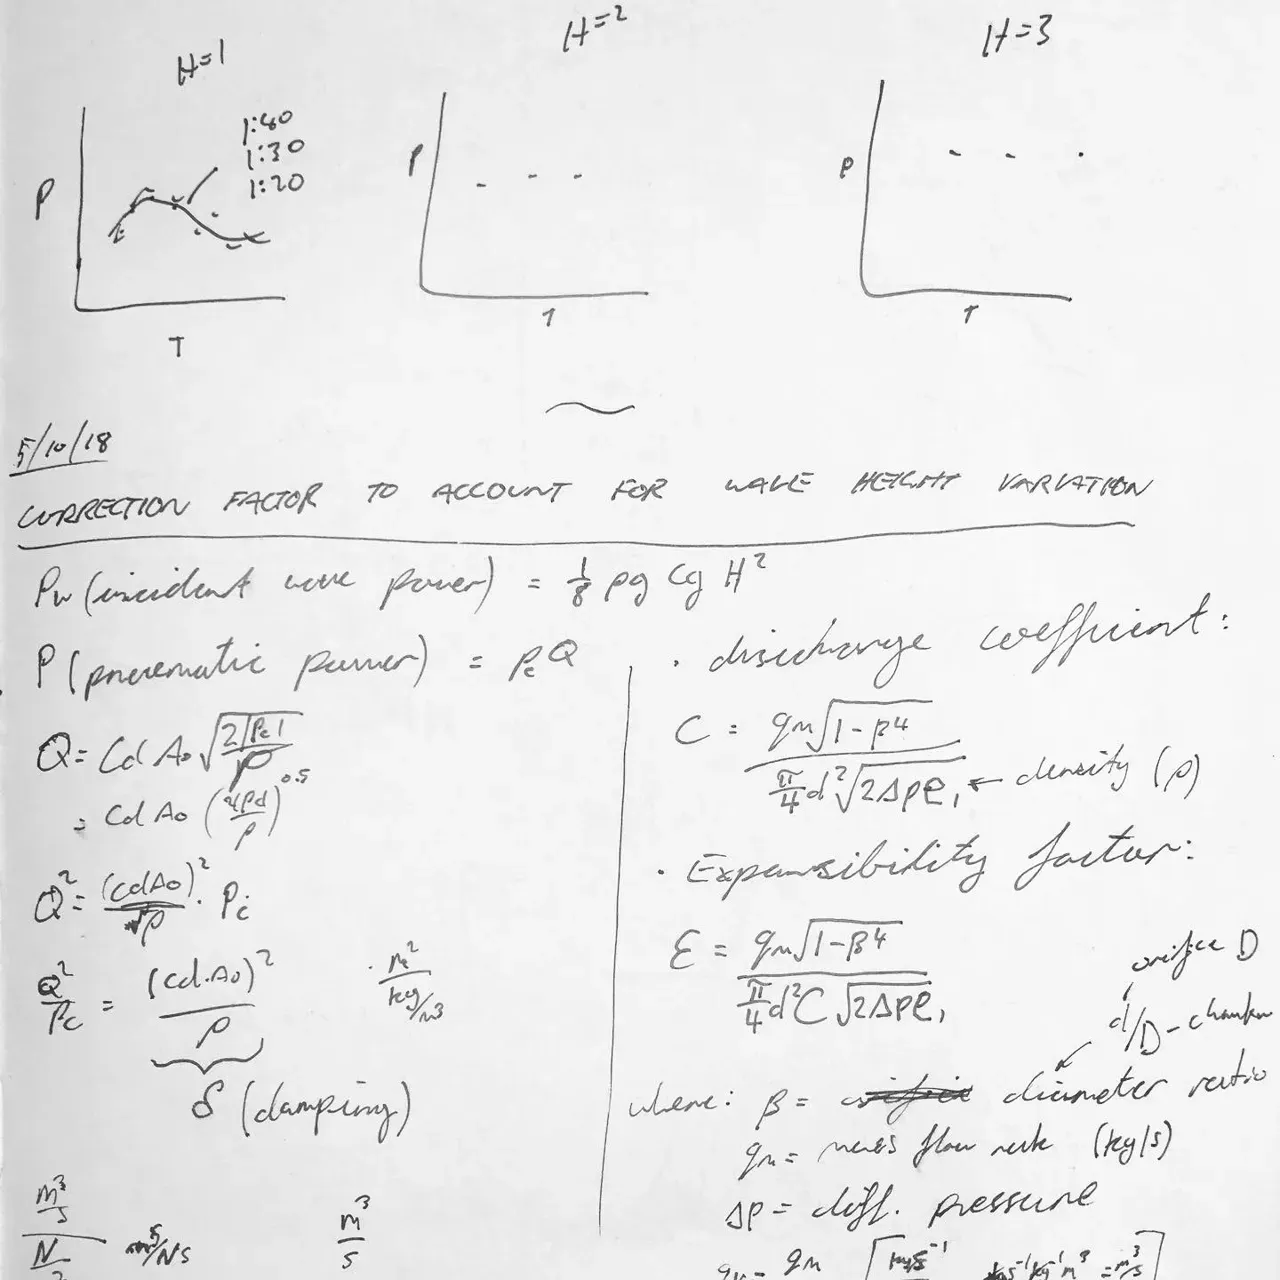 H=1
H=2
H=3
1:40
1:30
1:20
P
T
P
T
P
T
5/10/18
CORRECTION FACTOR TO ACCOUNT FOR WAVE HEIGHT VARIATION
Pw (incident wave power) = 1/8 ρg Cg H²
P (pneumatic power) = Pc Q
Q = Cd Ao √(2|Pc|/ρ)
= Cd Ao ( /ρ)^0.5
Q² = (CdAo)²/ρ · Pc
Q²/Pc = (Cd.Ao)²/ρ
δ (damping)
m³/s
N
m⁵/Ns
m³/s
· discharge coefficient:
C = qm√(1-β⁴) / (π/4 d²√(2Δpρ₁)) ← density (ρ)
· Expansibility factor:
ε = qm√(1-β⁴) / (π/4 d²C √(2Δpρ₁))
orifice D
d/D - chamber
where: β = diameter ratio
qm = mass flow rate (kg/s)
Δp = diff. pressure